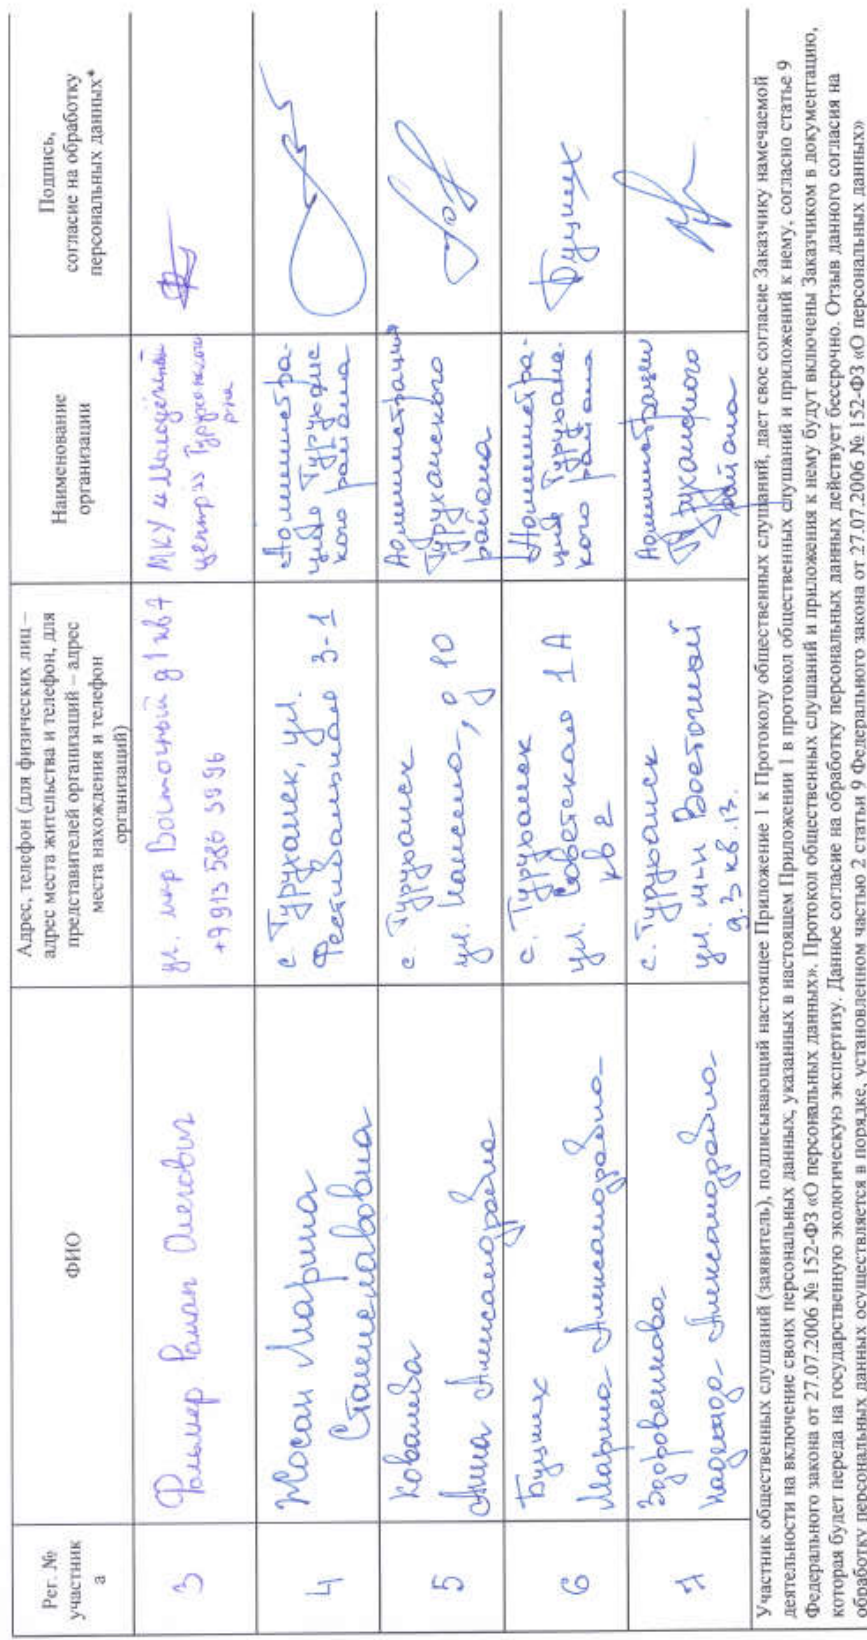 Рег. №
участник
а
ФИО
Адрес, телефон (для физических лиц –
адрес места жительства и телефон, для
представителей организаций – адрес
места нахождения и телефон
организаций)
Наименование
организации
Подпись,
согласие на обработку
персональных данных*
3
Фольмер Роман Олегович
ул. мкр Восточный д 1 кв 7
+7 913 586 5996
МКУ «Молодёжный
центр» Туруханского
р-на
4
Жосан Марина
Станиславовна
с. Туруханск, ул.
Фестивальная 3-1
Администра-
ция Туруханс
кого района
5
Ковалева
Анна Александровна
с. Туруханск
д 10
Администрация
Туруханского
района
6
Буцких
Марина Александровна
с. Туруханск
ул. Советская 1А
кв 2
Администра-
ция Туруханс
кого района
Буцких
7
Здоровенкова
Надежда Александровна
с. Туруханск
ул. м-н Восточный
д. 3 кв. 13.
Администрация
Туруханского
района
Участник общественных слушаний (заявитель), подписывающий настоящее Приложение 1 к Протоколу общественных слушаний, дает свое согласие Заказчику намечаемой
деятельности на включение своих персональных данных, указанных в настоящем Приложении 1 в протокол общественных слушаний и приложений к нему, согласно статье 9
Федерального закона от 27.07.2006 № 152-ФЗ «О персональных данных». Протокол общественных слушаний и приложения к нему будут включены Заказчиком в документацию,
которая будет переда на государственную экологическую экспертизу. Данное согласие на обработку персональных данных действует бессрочно. Отзыв данного согласия на
обработку персональных данных осуществляется в порядке, установленном частью 2 статьи 9 Федерального закона от 27.07.2006 № 152-ФЗ «О персональных данных»